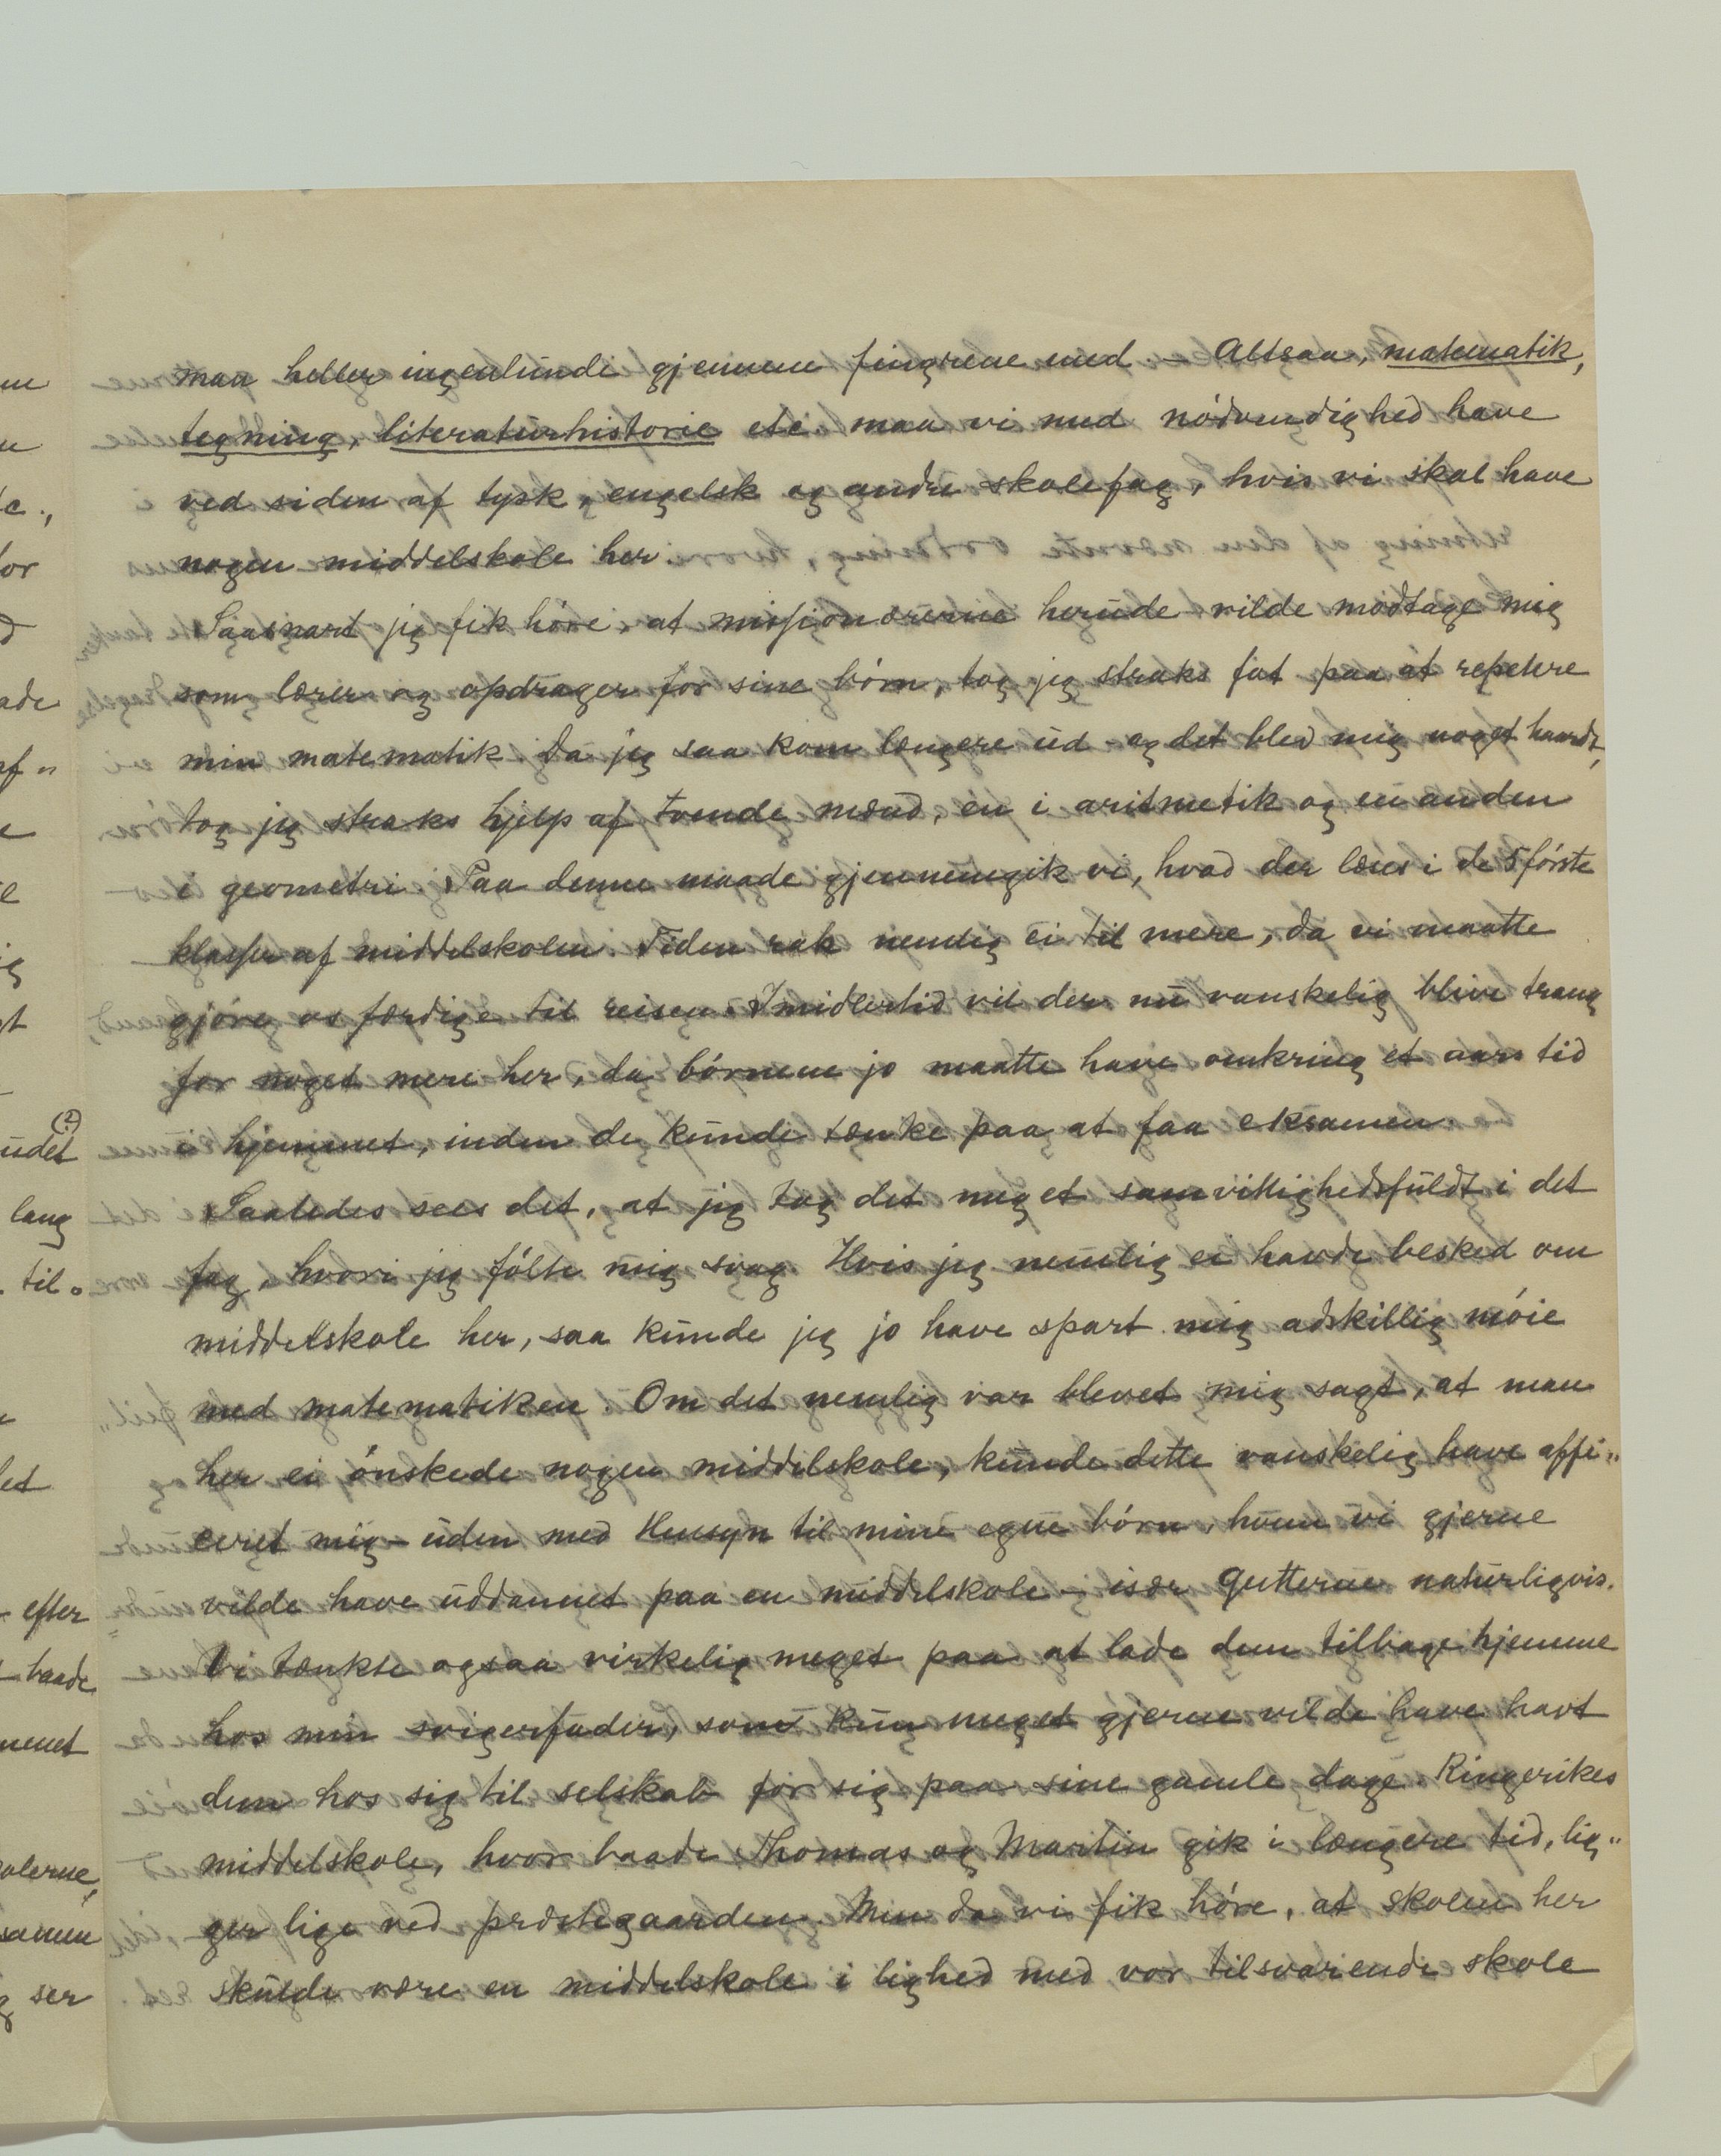 maa heller ingenlunde gjennem fingrene med. – Altsaa, matematik,
tegning, literaturhistorie etc maa vi med nödvendighed have
ved siden af tysk, engelsk og andre skolefag, hvis vi skal have
nogen middelskole her.
Saasnart jeg fik höre, at missionærerne herude vilde modtage mig
som lærer og opdrager for sine börn, tog jeg straks fat paa at repetere
min matematik. Da jeg saa kom længere ud – og det blev mig noget haardt,
tog jeg straks hjelp af tvende mænd, en i aritmetik og en anden
i geometri. Paa denne maade gjennemgik vi, hvad der læres i de 5 förste
klasser af middelskolen. Tiden rak nemlig ei til mere, da vi maatte
gjöre os færdige til reisen. Imidlertid vil der nu vanskelig blive trang
for noget mere her, da börnene jo maatte have omkring et aars tid
i hjemmet, inden de kunde tænke paa at faa eksamen.
Saaledes sees det, at jeg tog det meget samvittighedsfuldt i det
fag, hvori jeg fölte mig svag. Hvis jeg nemlig ei havde besked om
middelskole her, saa kunde jeg jo have spart mig adskillig möie
med matematiken. Om det nemlig var blevet mig sagt, at man
her ei önskede nogen middelskole, kunde dette vanskelig have affi„
ceret mig – uden med Hensyn til mine egne börn, hvem vi gjerne
vilde have uddannet paa en middelskole – især gutterne naturligvis.
Vi tænkte ogsaa virkelig meget paa at lade dem tilbage hjemme
hos min svigerfader, som kun meget gjerne vilde have havt
dem hos sig til selskab for sig paa sine gamle dage. Ringerikes
middelskole, hvor baade Thomas og Martin gik i længere tid, lig„
ger lige ved prestegaarden. Men da vi fik höre, at skolen her
skulde være en middelskole i lighed med vor tilsvarende skole